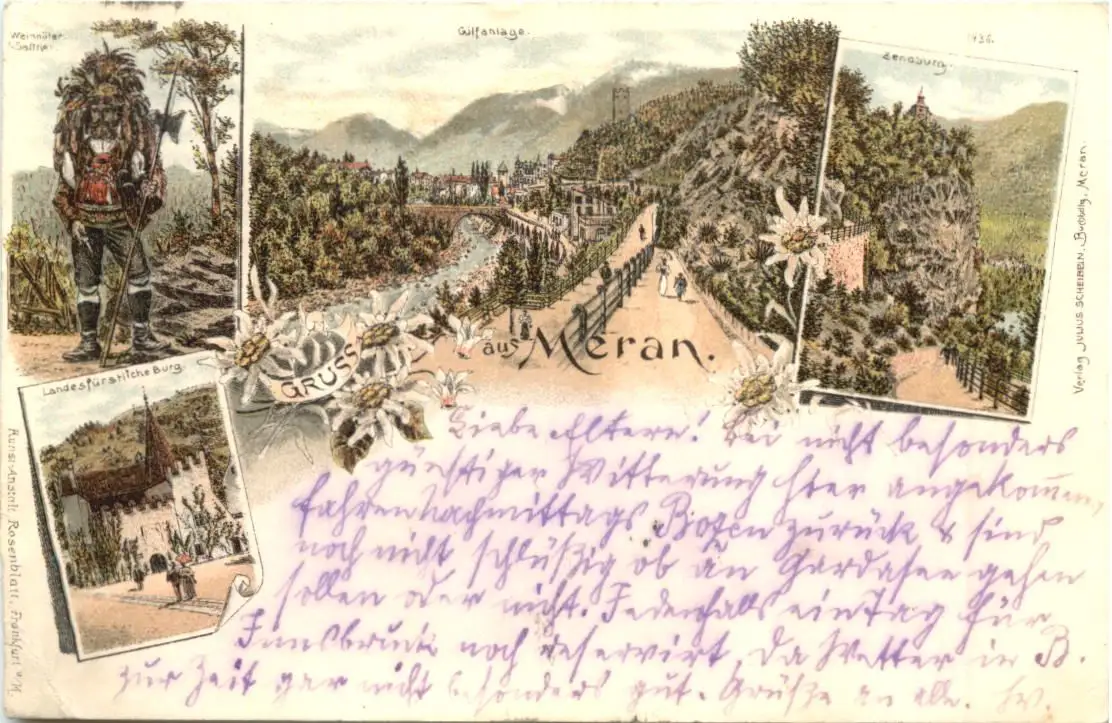 Weinhüter
(Saltner).
Gilfanlage.
1936.
Zenoburg.
Landesfürstliche Burg.
GRUSS
aus Meran.
Verlag JULIUS SCHEIBEIN, Buchhdlg., Meran.
Kunst-Anstalt, Rosenblatt, Frankfurt a/M.
Liebe Eltern! Bei nicht besonders
günstiger Witterung hier angekommen,
fahren Nachmittags Bozen zurück & sind
noch nicht schlüßig ob an Gardasee gehen
sollen oder nicht. Jedenfalls ein Tag für
Innsbruck noch reservirt, da Wetter in B.
zur Zeit gar nicht besonders gut. Grüße an alle.